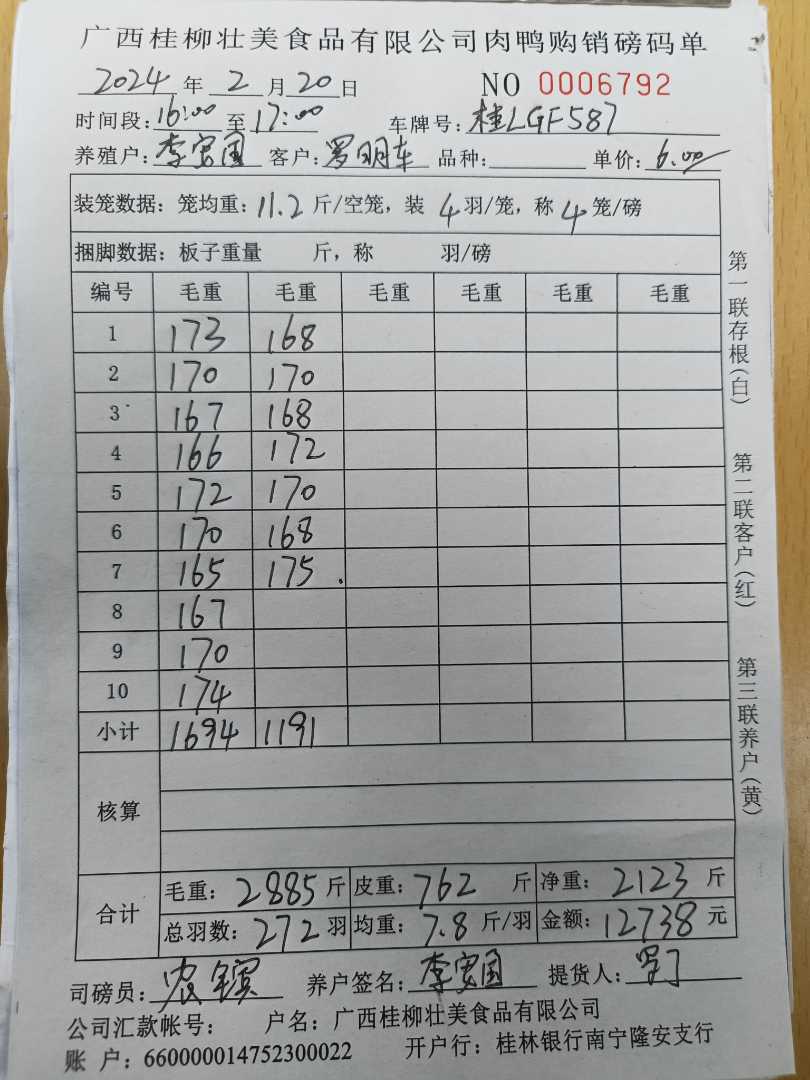 广西桂柳壮美食品有限公司肉鸭购销磅码单
2024 年 2 月 20 日 NO 0006792
时间段: 16:00 至 17:00 车牌号: 桂LGF587
养殖户: 李宽国 客户: 罗明车 品种: 单价: 6.00
装笼数据: 笼均重: 11.2 斤/空笼, 装 4 羽/笼, 称 4 笼/磅
捆脚数据: 板子重量 斤, 称 羽/磅
编号 毛重 毛重 毛重 毛重 毛重 毛重
1 173 168
2 170 170
3 167 168
4 166 172
5 172 170
6 170 168
7 165 175
8 167
9 170
10 174
小计 1694 1191
核算
合计 毛重: 2885 斤 皮重: 762 斤 净重: 2123 斤
总羽数: 272 羽 均重: 7.8 斤/羽 金额: 12738 元
司磅员: 农 养户签名: 李宽国 提货人: 罗
公司汇款帐号: 户名: 广西桂柳壮美食品有限公司
账 户: 660000014752300022 开户行: 桂林银行南宁隆安支行
第一联存根(白)
第二联客户(红)
第三联养户(黄)